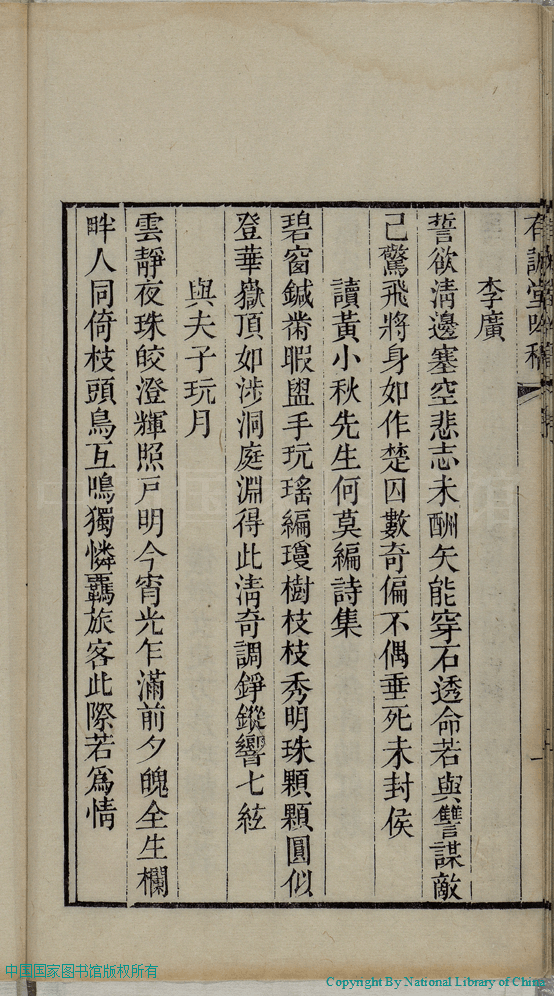 有誠堂吟稿
李廣
誓欲淸邊塞空悲志未酬矢能穿石透命若與讐謀敵
已驚飛將身如作楚囚數奇偏不偶垂死未封侯
讀黃小秋先生何莫編詩集
碧窗鍼黹暇盥手玩瑤編瓊樹枝枝秀明珠顆顆圓似
登華嶽頂如涉洞庭淵得此淸奇調錚鏦響七絃
與夫子玩月
雲靜夜珠皎澄輝照戸明今宵光乍滿前夕魄全生欄
畔人同倚枝頭鳥互鳴獨憐羈旅客此際若爲情
中国国家图书馆版权所有
Copyright By National Library of China